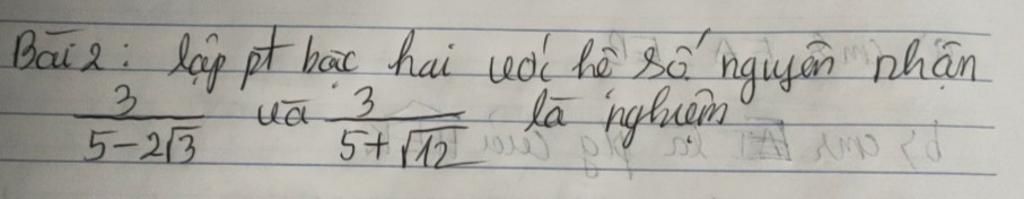 Bài 2: lập pt bậc hai với hệ số nguyên nhận
3/(5-2√3) và 3/(5+√12) là nghiệm